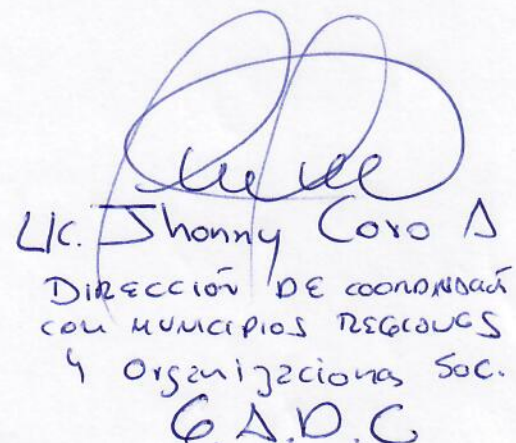 Lic. Jhonny Coro A
DIRECCIÓN DE COORDINACIÓN
CON MUNICIPIOS REGIONES
Y Organizaciones Soc.
G.A.D.C